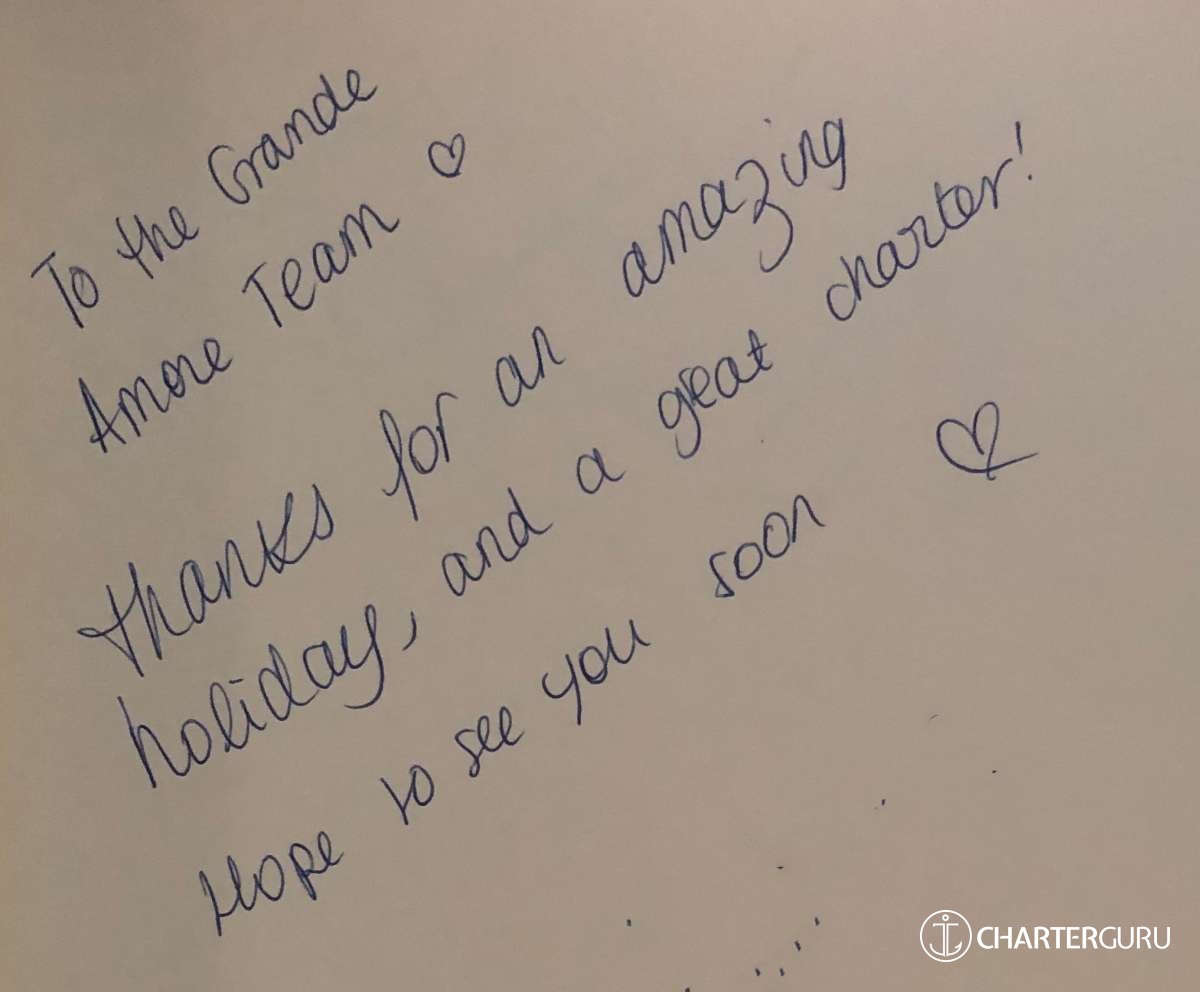 To the Grande
Amore Team ♡
thanks for an amazing
holiday, and a great charter!
Hope to see you soon ♡
CHARTERGURU